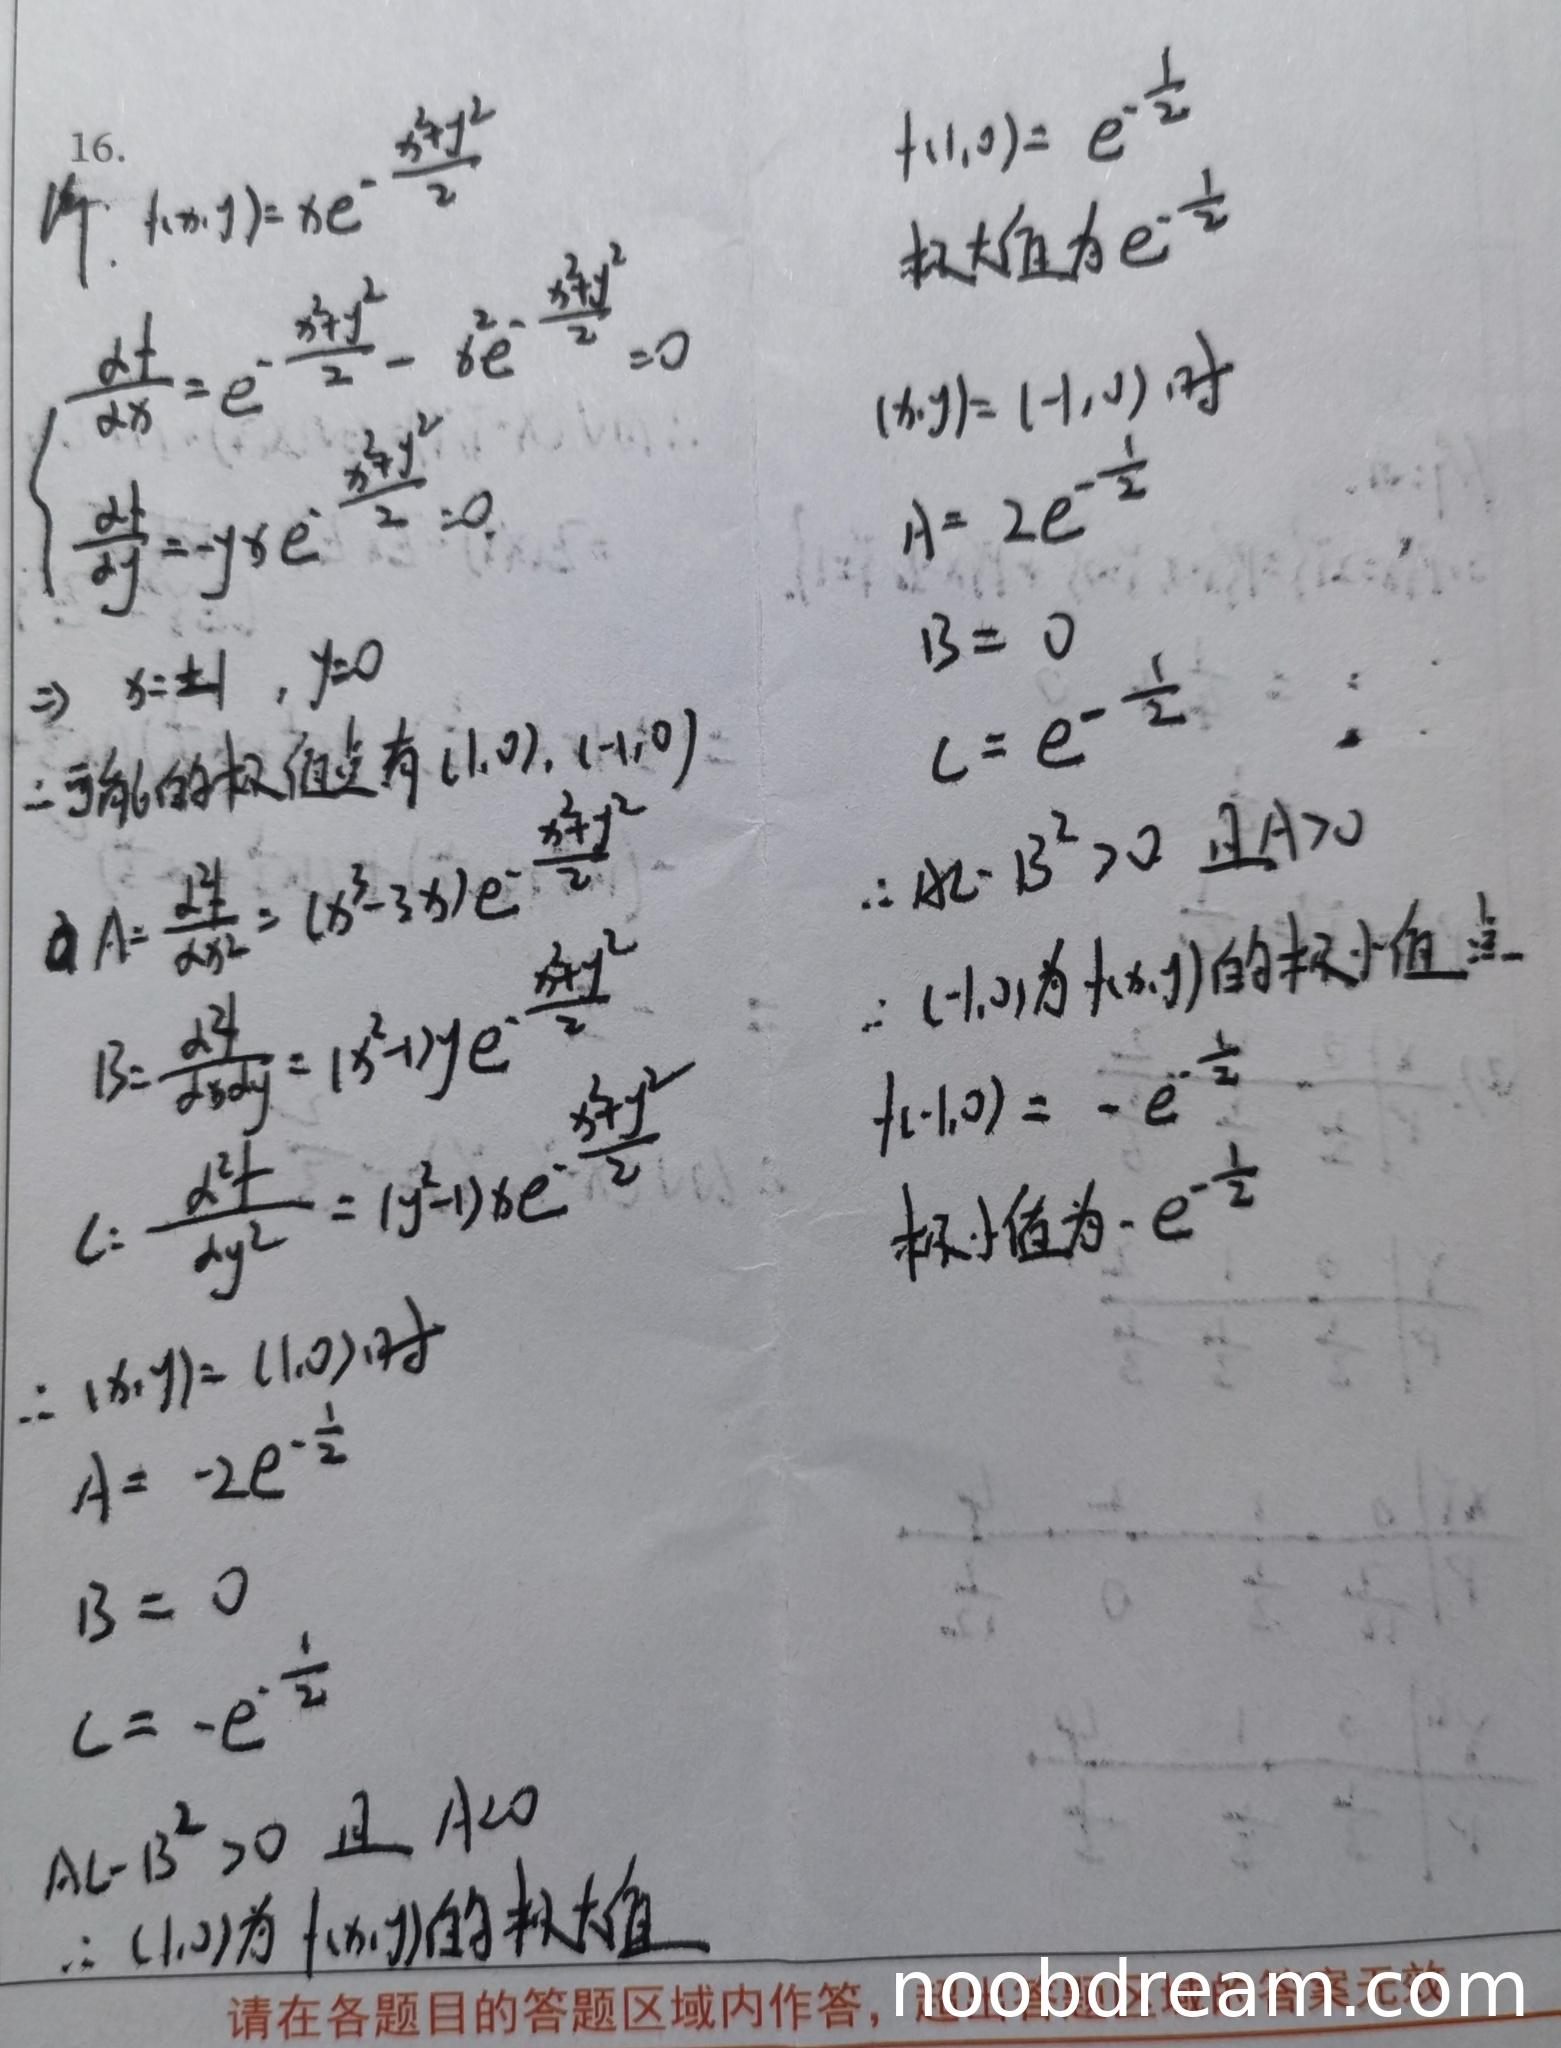 16.
解. f(x,y)=xe^{-\frac{x^2+y^2}{2}}
\frac{∂f}{∂x}=e^{-\frac{x^2+y^2}{2}}-x^2e^{-\frac{x^2+y^2}{2}}=0
\frac{∂f}{∂y}=-yxe^{-\frac{x^2+y^2}{2}}=0.
⇒ x=±1, y=0
∴可能的极值点有(1,0), (-1,0)
A=\frac{∂^2f}{∂x^2}=(x^3-3x)e^{-\frac{x^2+y^2}{2}}
B=\frac{∂^2f}{∂x∂y}=(x^2-1)ye^{-\frac{x^2+y^2}{2}}
C=\frac{∂^2f}{∂y^2}=(y^2-1)xe^{-\frac{x^2+y^2}{2}}
∴ (x,y)=(1,0)时
A=-2e^{-\frac{1}{2}}
B=0
C=-e^{-\frac{1}{2}}
AC-B^2>0 且 A<0
∴(1,0)为f(x,y)的极大值
f(1,0)=e^{-\frac{1}{2}}
极大值为e^{-\frac{1}{2}}
(x,y)=(-1,0)时
A=2e^{-\frac{1}{2}}
B=0
C=e^{-\frac{1}{2}}
∴AC-B^2>0 且A>0
∴(-1,0)为f(x,y)的极小值点
f(-1,0)=-e^{-\frac{1}{2}}
极小值为-e^{-\frac{1}{2}}
请在各题目的答题区域内作答，超出答题区域的答案无效
noobdream.com